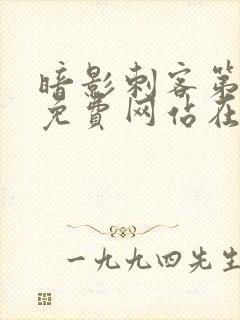 暗影刺客第
免費网站在
一九九四先生